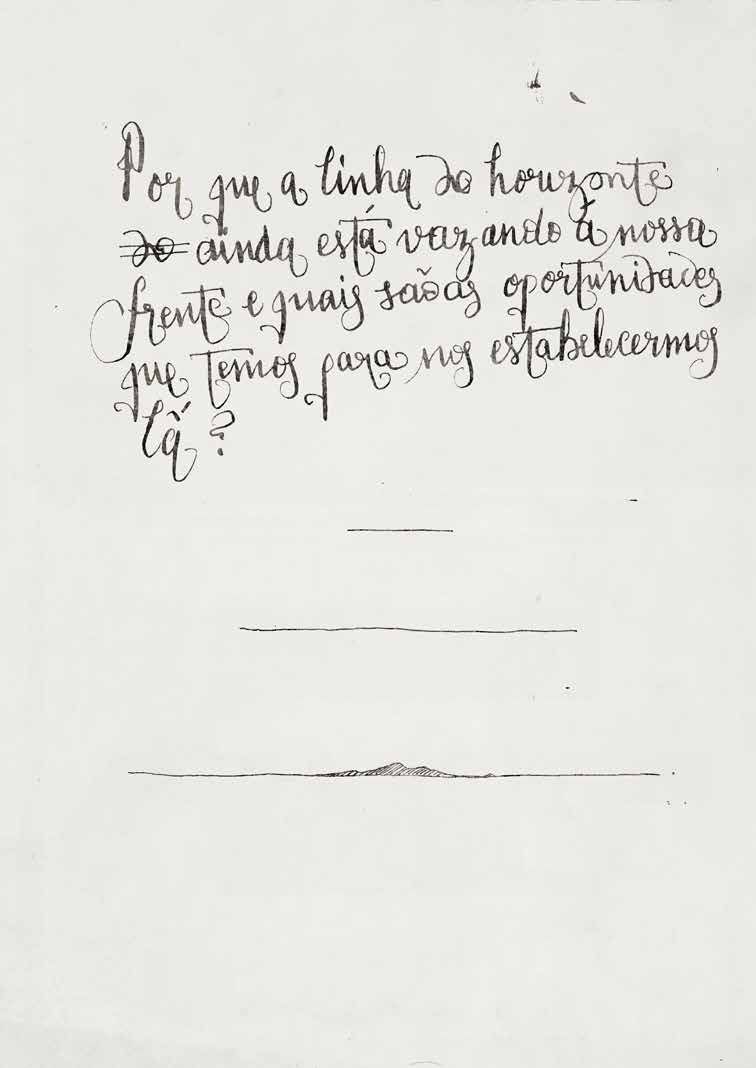 Por que a linha do horizonte
do ainda está vazando à nossa
frente e quais são as oportunidades
que temos para nos estabelecermos
lá?